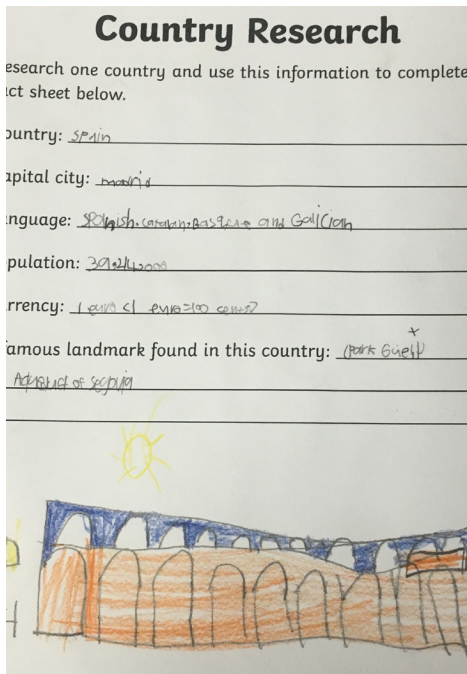 Country Research
esearch one country and use this information to complete
ct sheet below.
ountry: Spain
apital city: madrid
nguage: Spanish. catalan. Basque and Galician
pulation:
rrency: 1 euro (1 euro=100 cents)
famous landmark found in this country: Park Güell
Aqueduct of Segovia